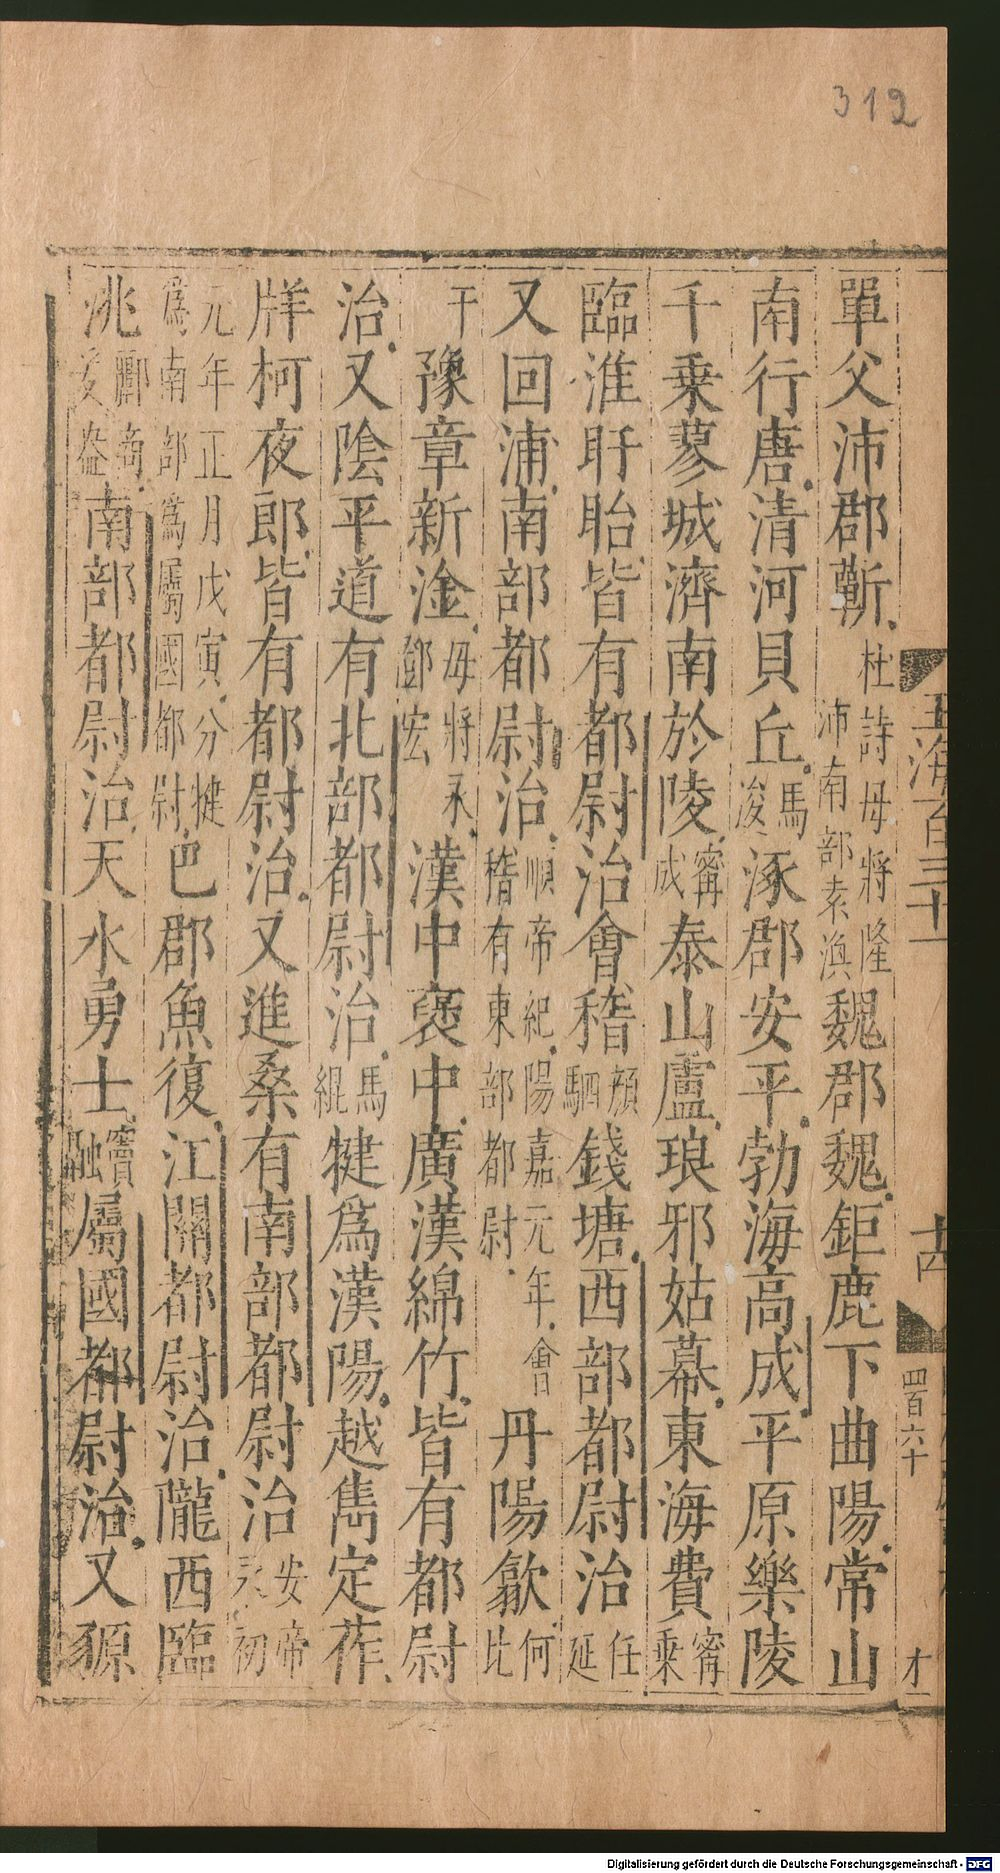 312
單父沛郡蘄杜詩母將隆沛南部素滇魏郡魏鉅鹿下曲陽常山
南行唐清河貝丘馬浚涿郡安平勃海高成平原樂陵
千乗蓼城濟南於陵甯成泰山盧琅邪姑幕東海費甯乗
臨淮盱眙皆有都尉治會稽顏駟錢塘西部都尉治任延
又回浦南部都尉治順帝紀陽嘉元年會稽有東部都尉丹陽歙何比
干豫章新淦毋將永鄧宏漢中褒中廣漢綿竹皆有都尉
治又陰平道有北部都尉治馬緄犍爲漢陽越雋定莋
牂柯夜郎皆有都尉治又進桑有南部都尉治安帝永初
元年正月戊寅分犍爲南部爲屬國都尉巴郡魚復江關都尉治隴西臨
洮酈商爰盎南部都尉治天水勇士竇融屬國都尉治又豲
玉海百三十一
十四
四百六十
才
Digitalisierung gefördert durch die Deutsche Forschungsgemeinschaft - DFG